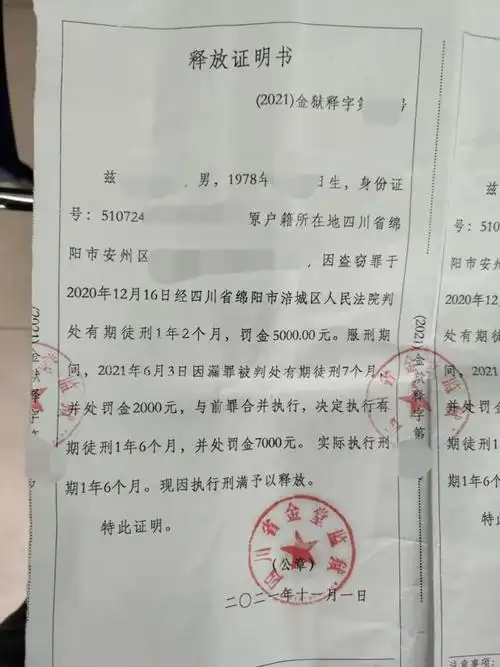 释放证明书
(2021)金狱释字第 号
兹 , 男, 1978年 日生, 身份证
号: 510724 原户籍所在地四川省绵
阳市安州区 , 因盗窃罪于
2020年12月16日经四川省绵阳市涪城区人民法院判
处有期徒刑1年2个月, 罚金5000.00元。服刑期
间, 2021年6月3日因漏罪被判处有期徒刑7个月,
并处罚金2000元, 与前罪合并执行, 决定执行有
期徒刑1年6个月, 并处罚金7000元。 实际执行刑
期1年6个月。现因执行刑满予以释放。
特此证明。
四川省金堂监狱
(公章)
二〇二一年十一月一日
(2021)金狱释字第
兹
号: 510
阳市安州区
2020年12
处有期徒
间, 2021
并处罚金
期徒刑1
期1年6个
特此
注意事项: